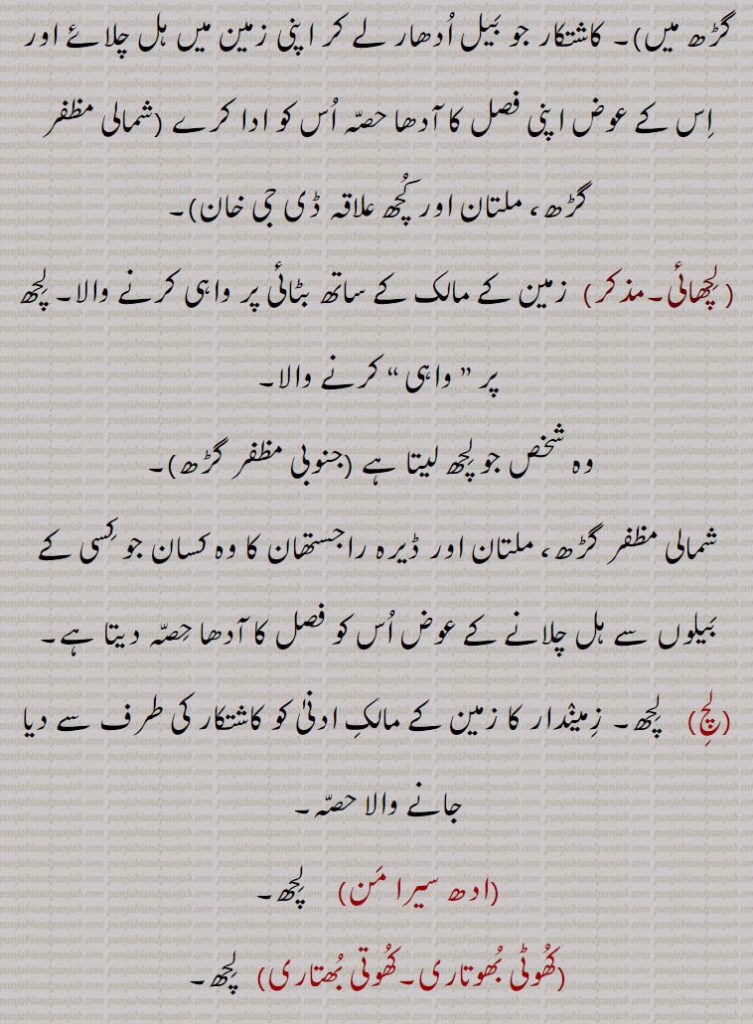 گڑھ میں)۔ کاشتکار جو بَیل اُدھار لے کر اپنی زمین میں ہل چلائے اور
اِس کے عوض اپنی فصل کا آدھا حصّہ اُس کو ادا کرے (شمالی مظفر
گڑھ، ملتان اور کُچھ علاقہ ڈی جی خان)۔
(لِچھائی۔مذکر) زمین کے مالک کے ساتھ بٹائی پر واہی کرنے والا۔ لِچھ
پر ”واہی“ کرنے والا۔
وہ شخص جو لِچھ لیتا ہے (جنوبی مظفر گڑھ)۔
شمالی مظفر گڑھ، ملتان اور ڈیرہ راجستھان کا وہ کسان جو کِسی کے
بَیلوں سے ہل چلانے کے عوض اُس کو فصل کا آدھا حِصّہ دیتا ہے۔
(لِچِ) لِچھ۔ زِمیندار کا زمین کے مالکِ ادنیٰ کو کاشتکار کی طرف سے دیا
جانے والا حصّہ۔
(ادھ سیرا مَن) لِچھ۔
(کھُوٹی بُھوتاری۔کھُوتی بُھتاری) لِچھ۔